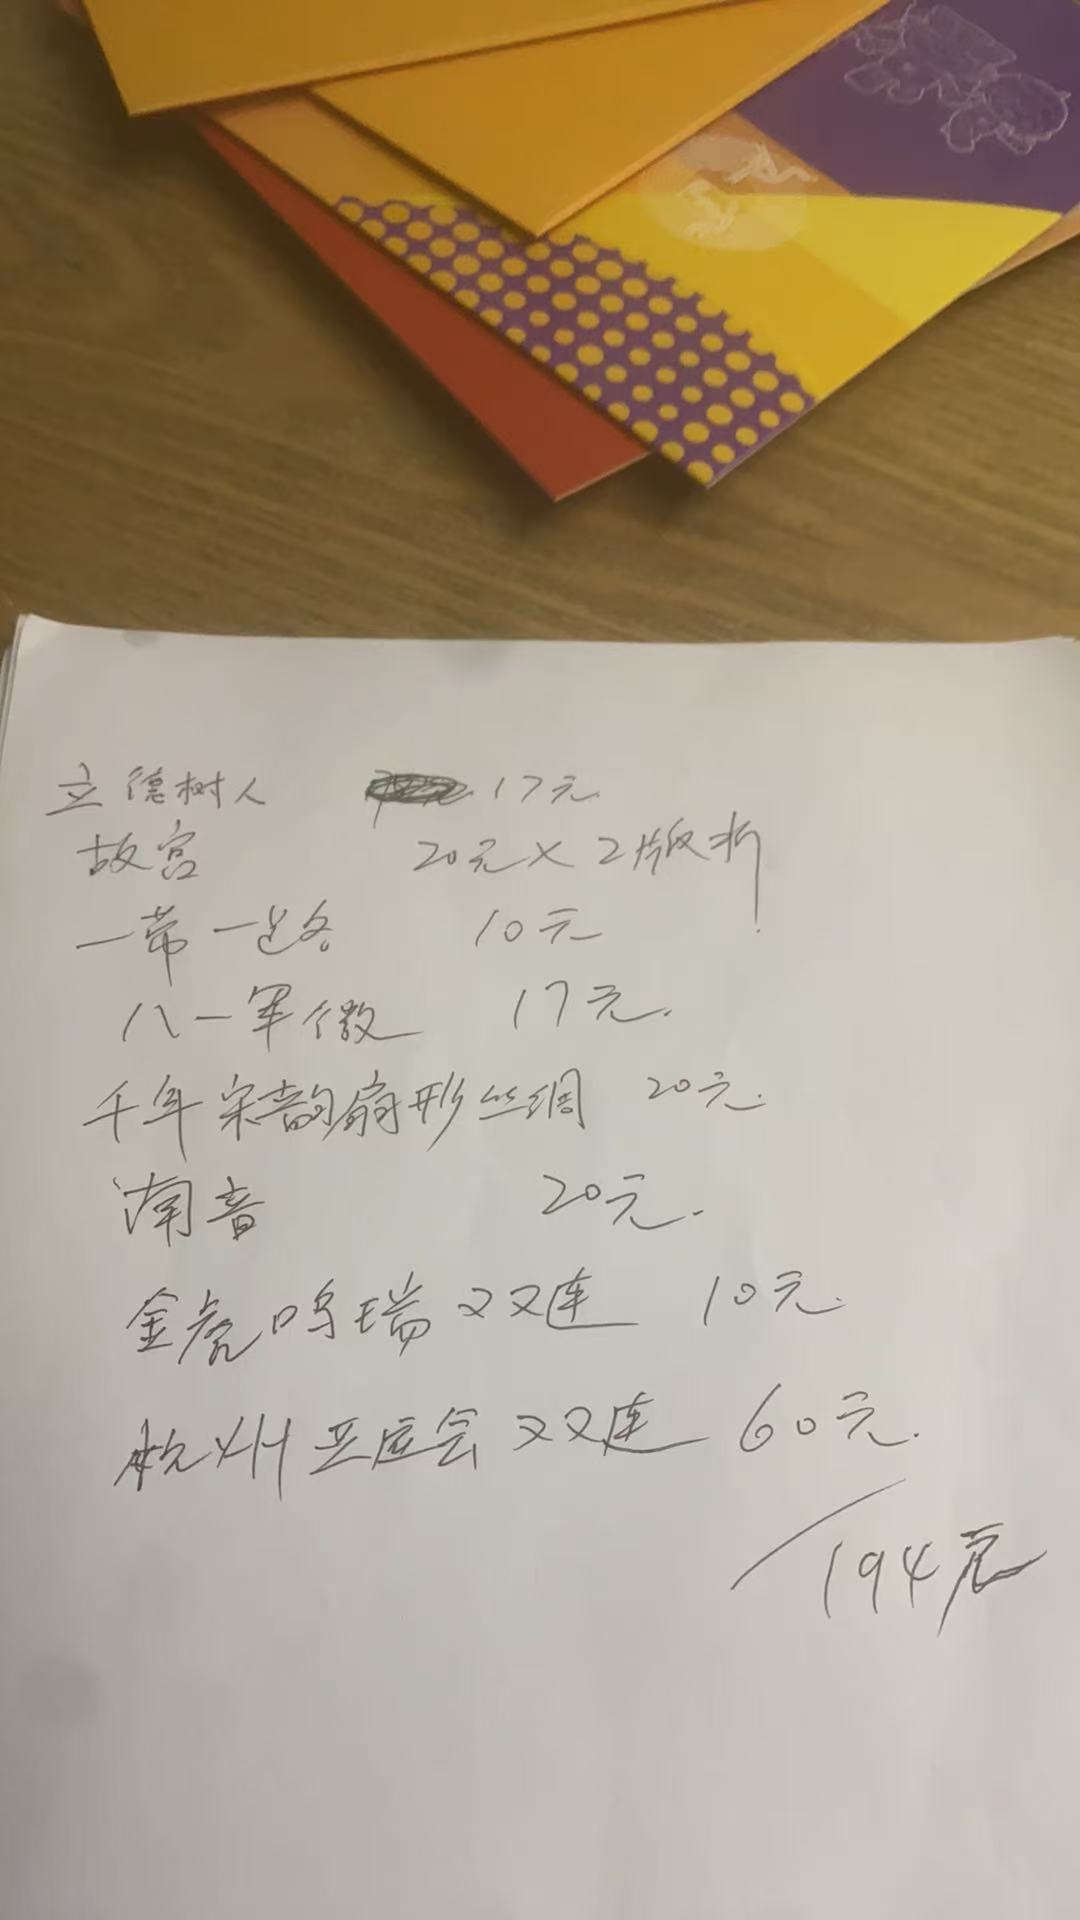 立德树人 17元
故宫 20元×2版折
一带一路 10元
八一军徽 17元.
千年宋韵扇形丝绸 20元.
南音 20元.
金虎鸣瑞双连 10元.
杭州亚运会双连 60元.
194元